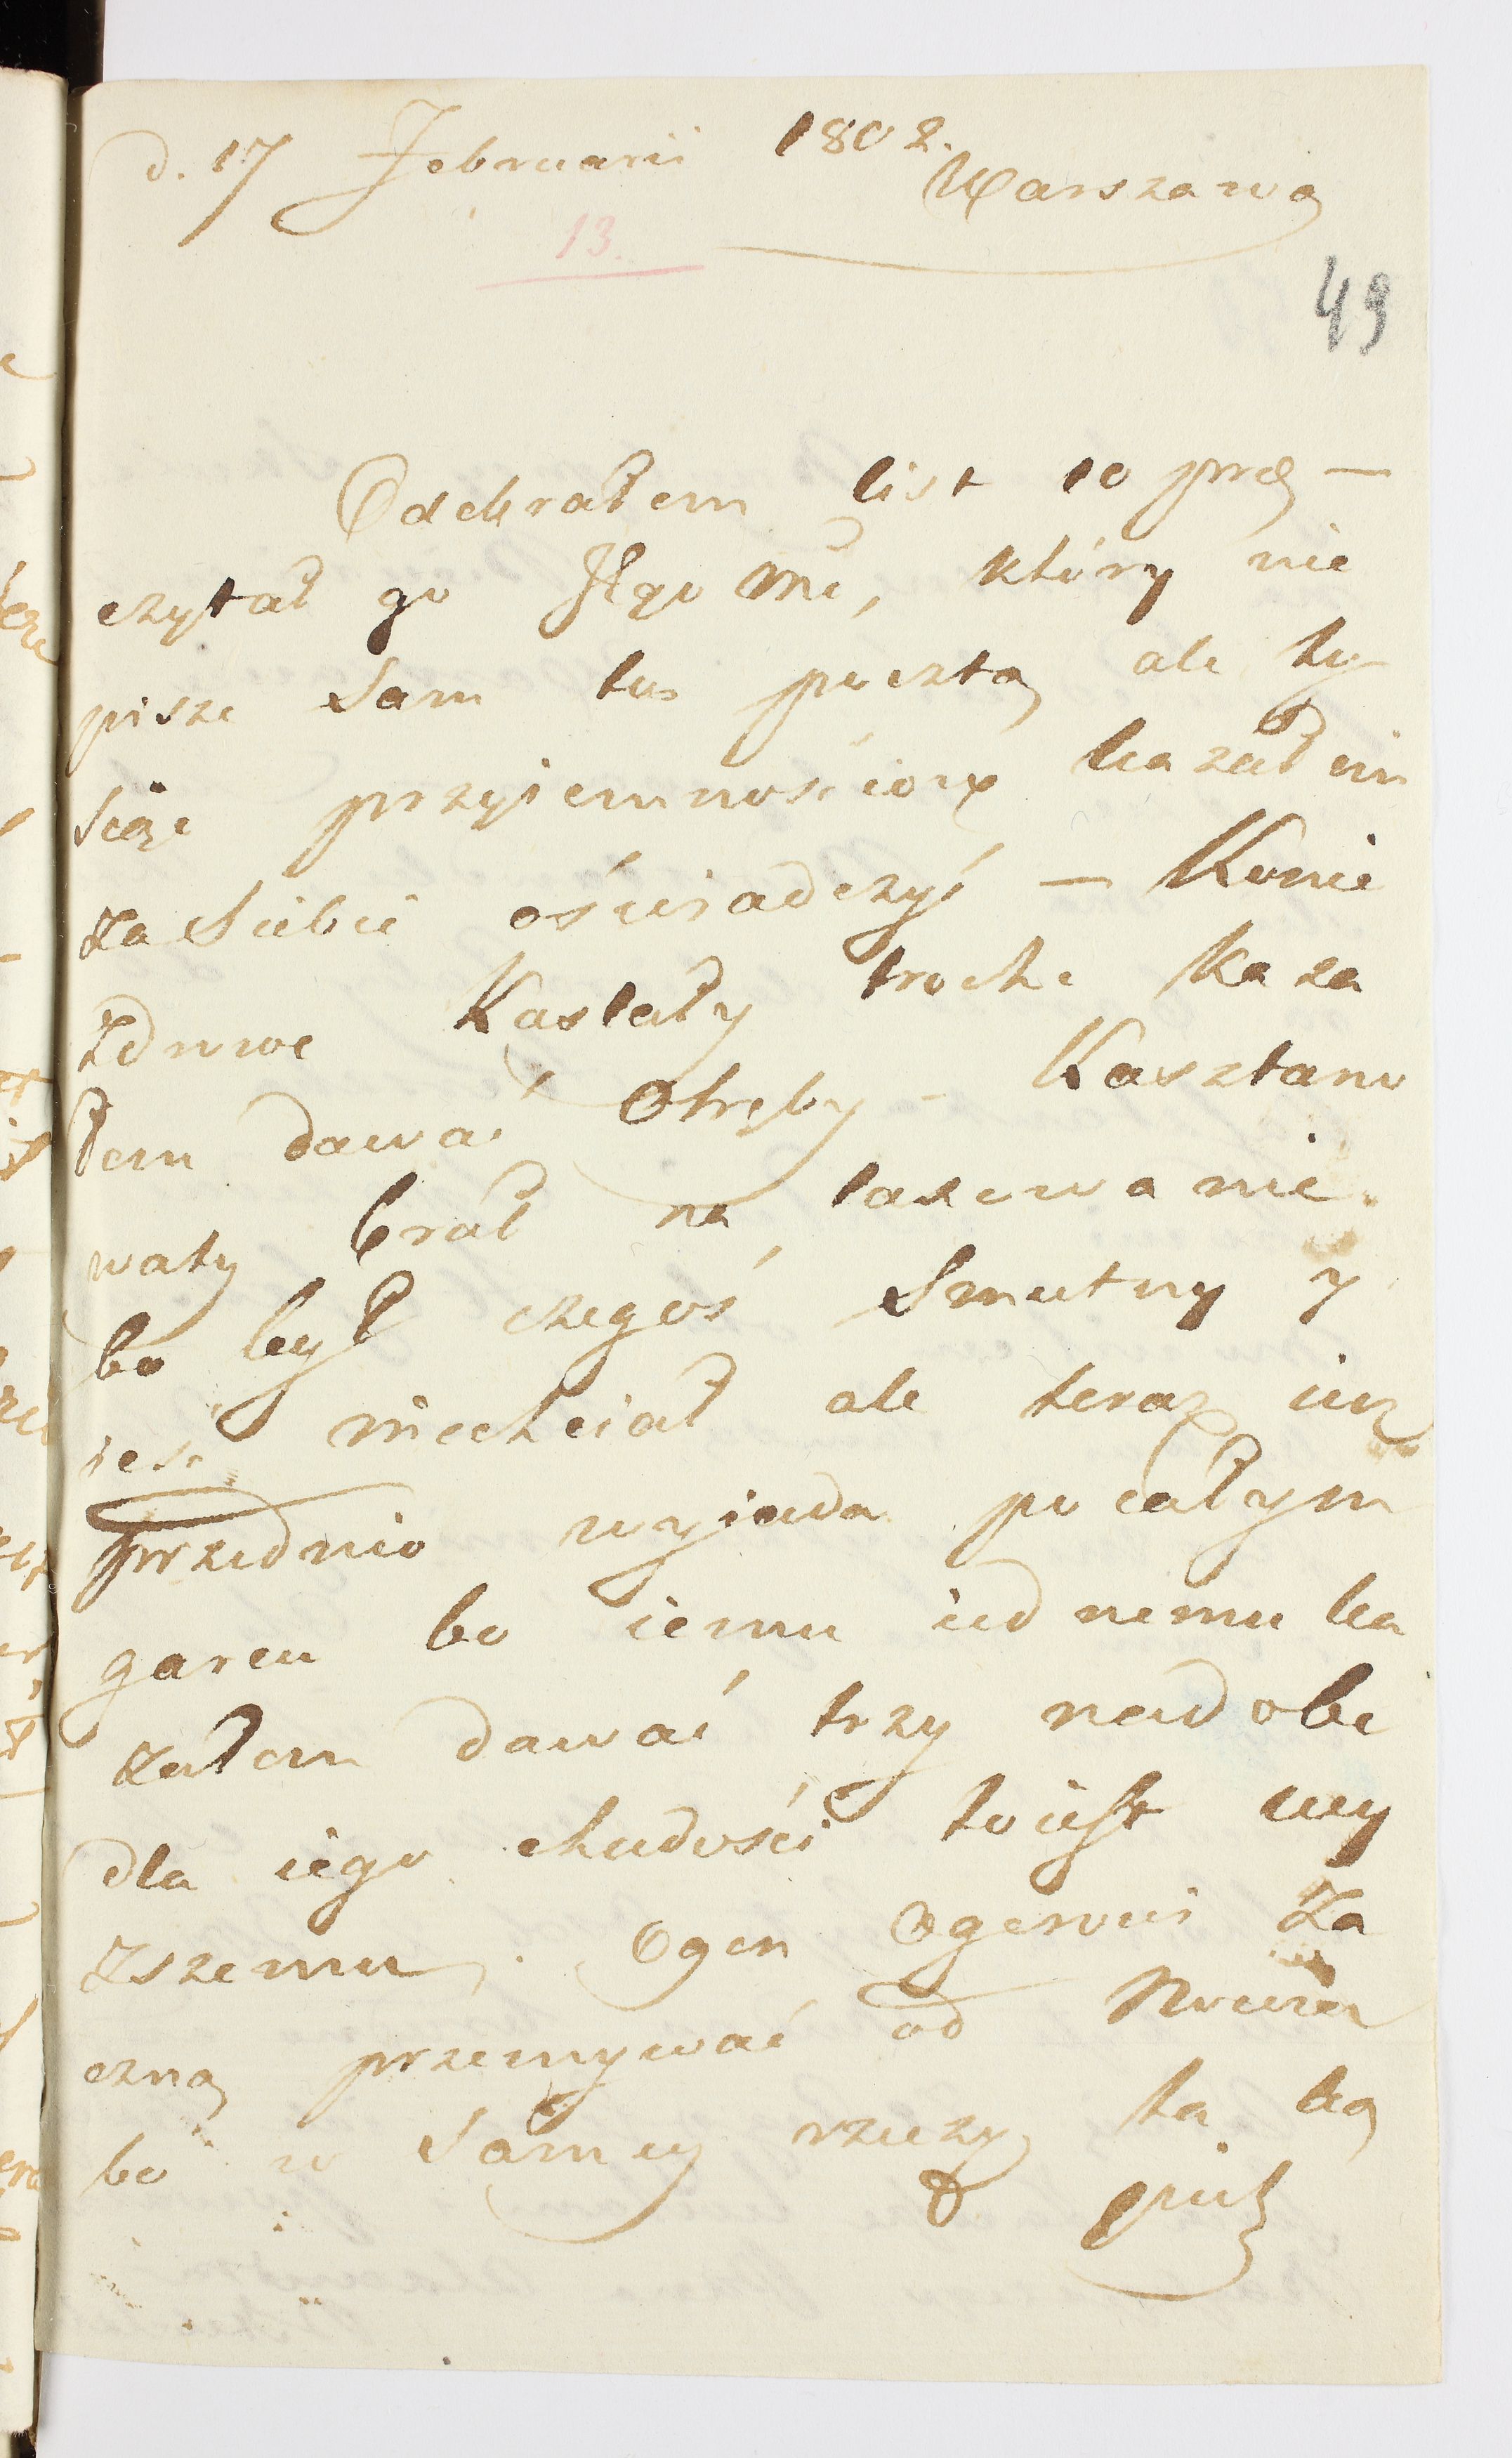 d. 17 Februarii 1802.
Warszawa
13.
49
Odebrałem list to prze —
czytał go Jgo Mć, który nie
pisze Sam tu pocztą ale ty-
siąc przyiemnościow kazał im
za Siebie oświadczyć — Konie
zdrowe Kaslały troche kaza
łem dawać Otręby - Kasztano
waty brał na laxowanie.
bo był czegoś Smutny y
iesć niechciał ale teraz iuz
przednio wyiada po całym
garcu bo iemu iednemu ka
załem dawać trzy nadobe
dla iego chudości toiest wy
zszemu. Ogon Ogerowi Za
czną przemywać od
bo w Samey rzeczy ta ką
piel